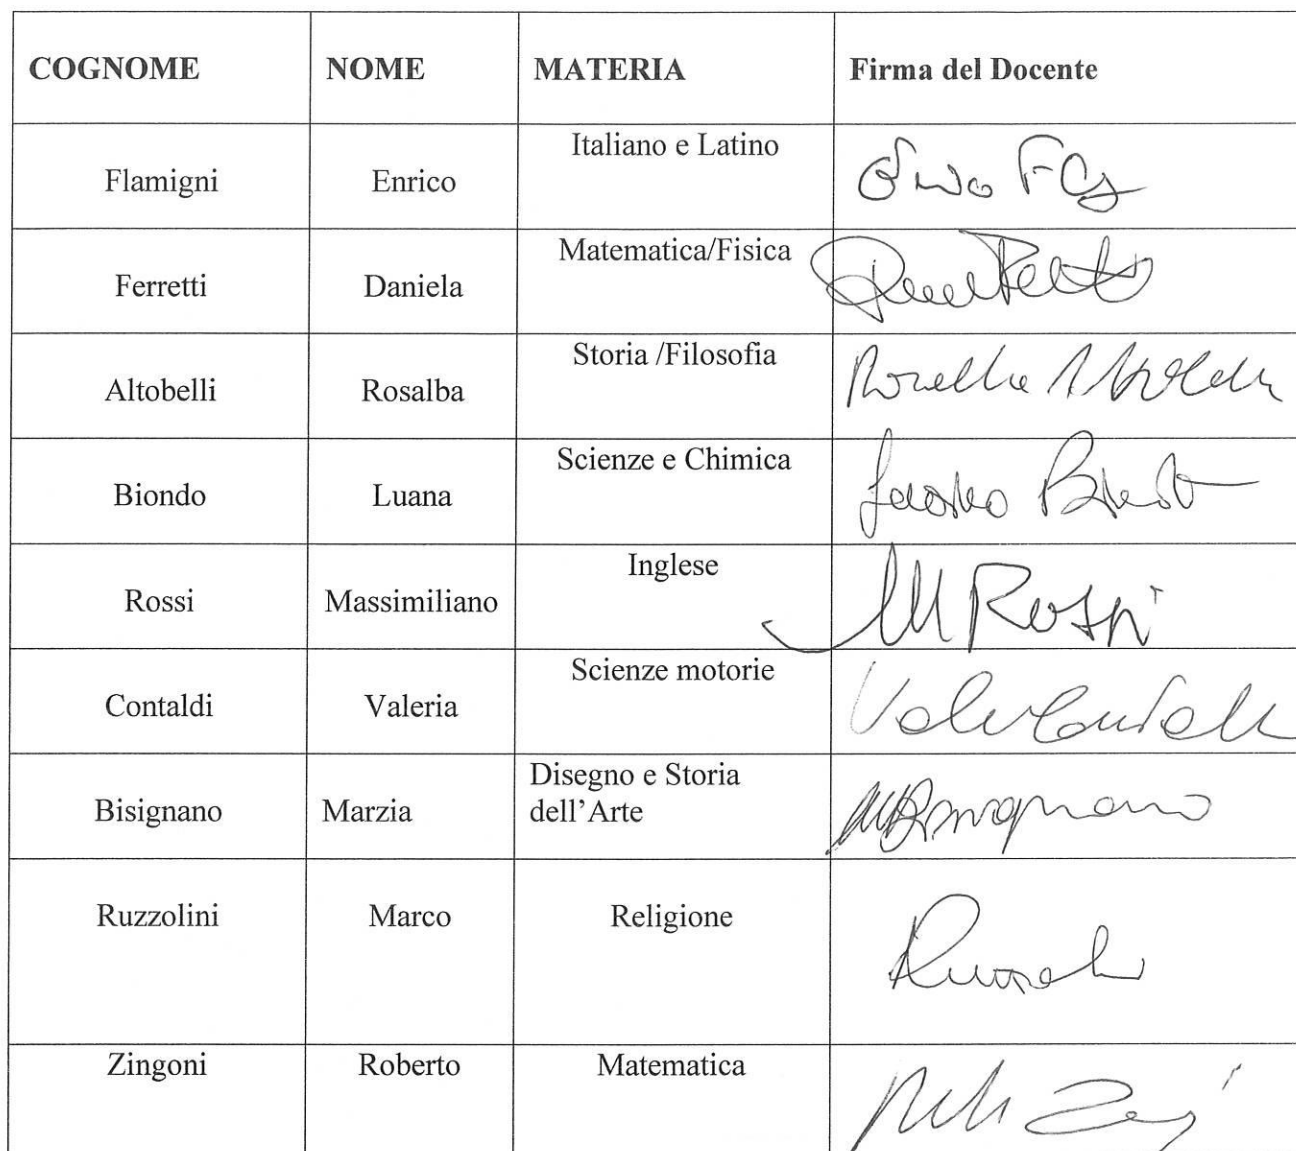 COGNOME NOME MATERIA Firma del Docente
Flamigni Enrico Italiano e Latino
Ferretti Daniela Matematica/Fisica
Altobelli Rosalba Storia /Filosofia
Biondo Luana Scienze e Chimica
Rossi Massimiliano Inglese M Rossi
Contaldi Valeria Scienze motorie
Bisignano Marzia Disegno e Storia
dell'Arte
Ruzzolini Marco Religione
Zingoni Roberto Matematica